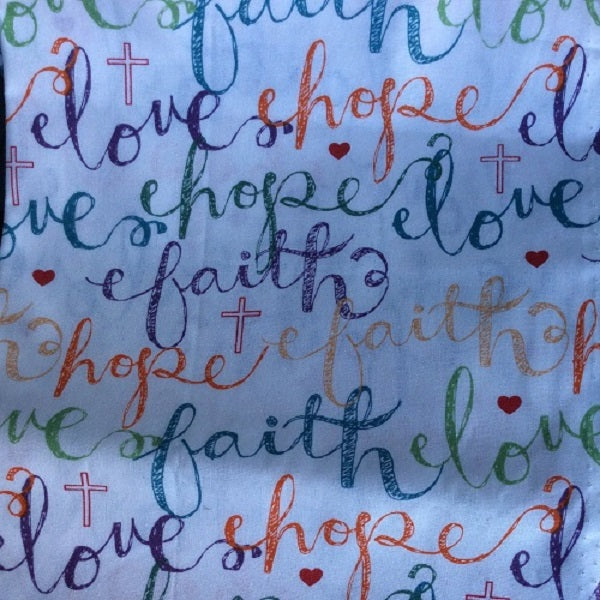 love faith love
love hope lo
ove hope love
faith
h faith
hope h
ove faith love
love hope lo